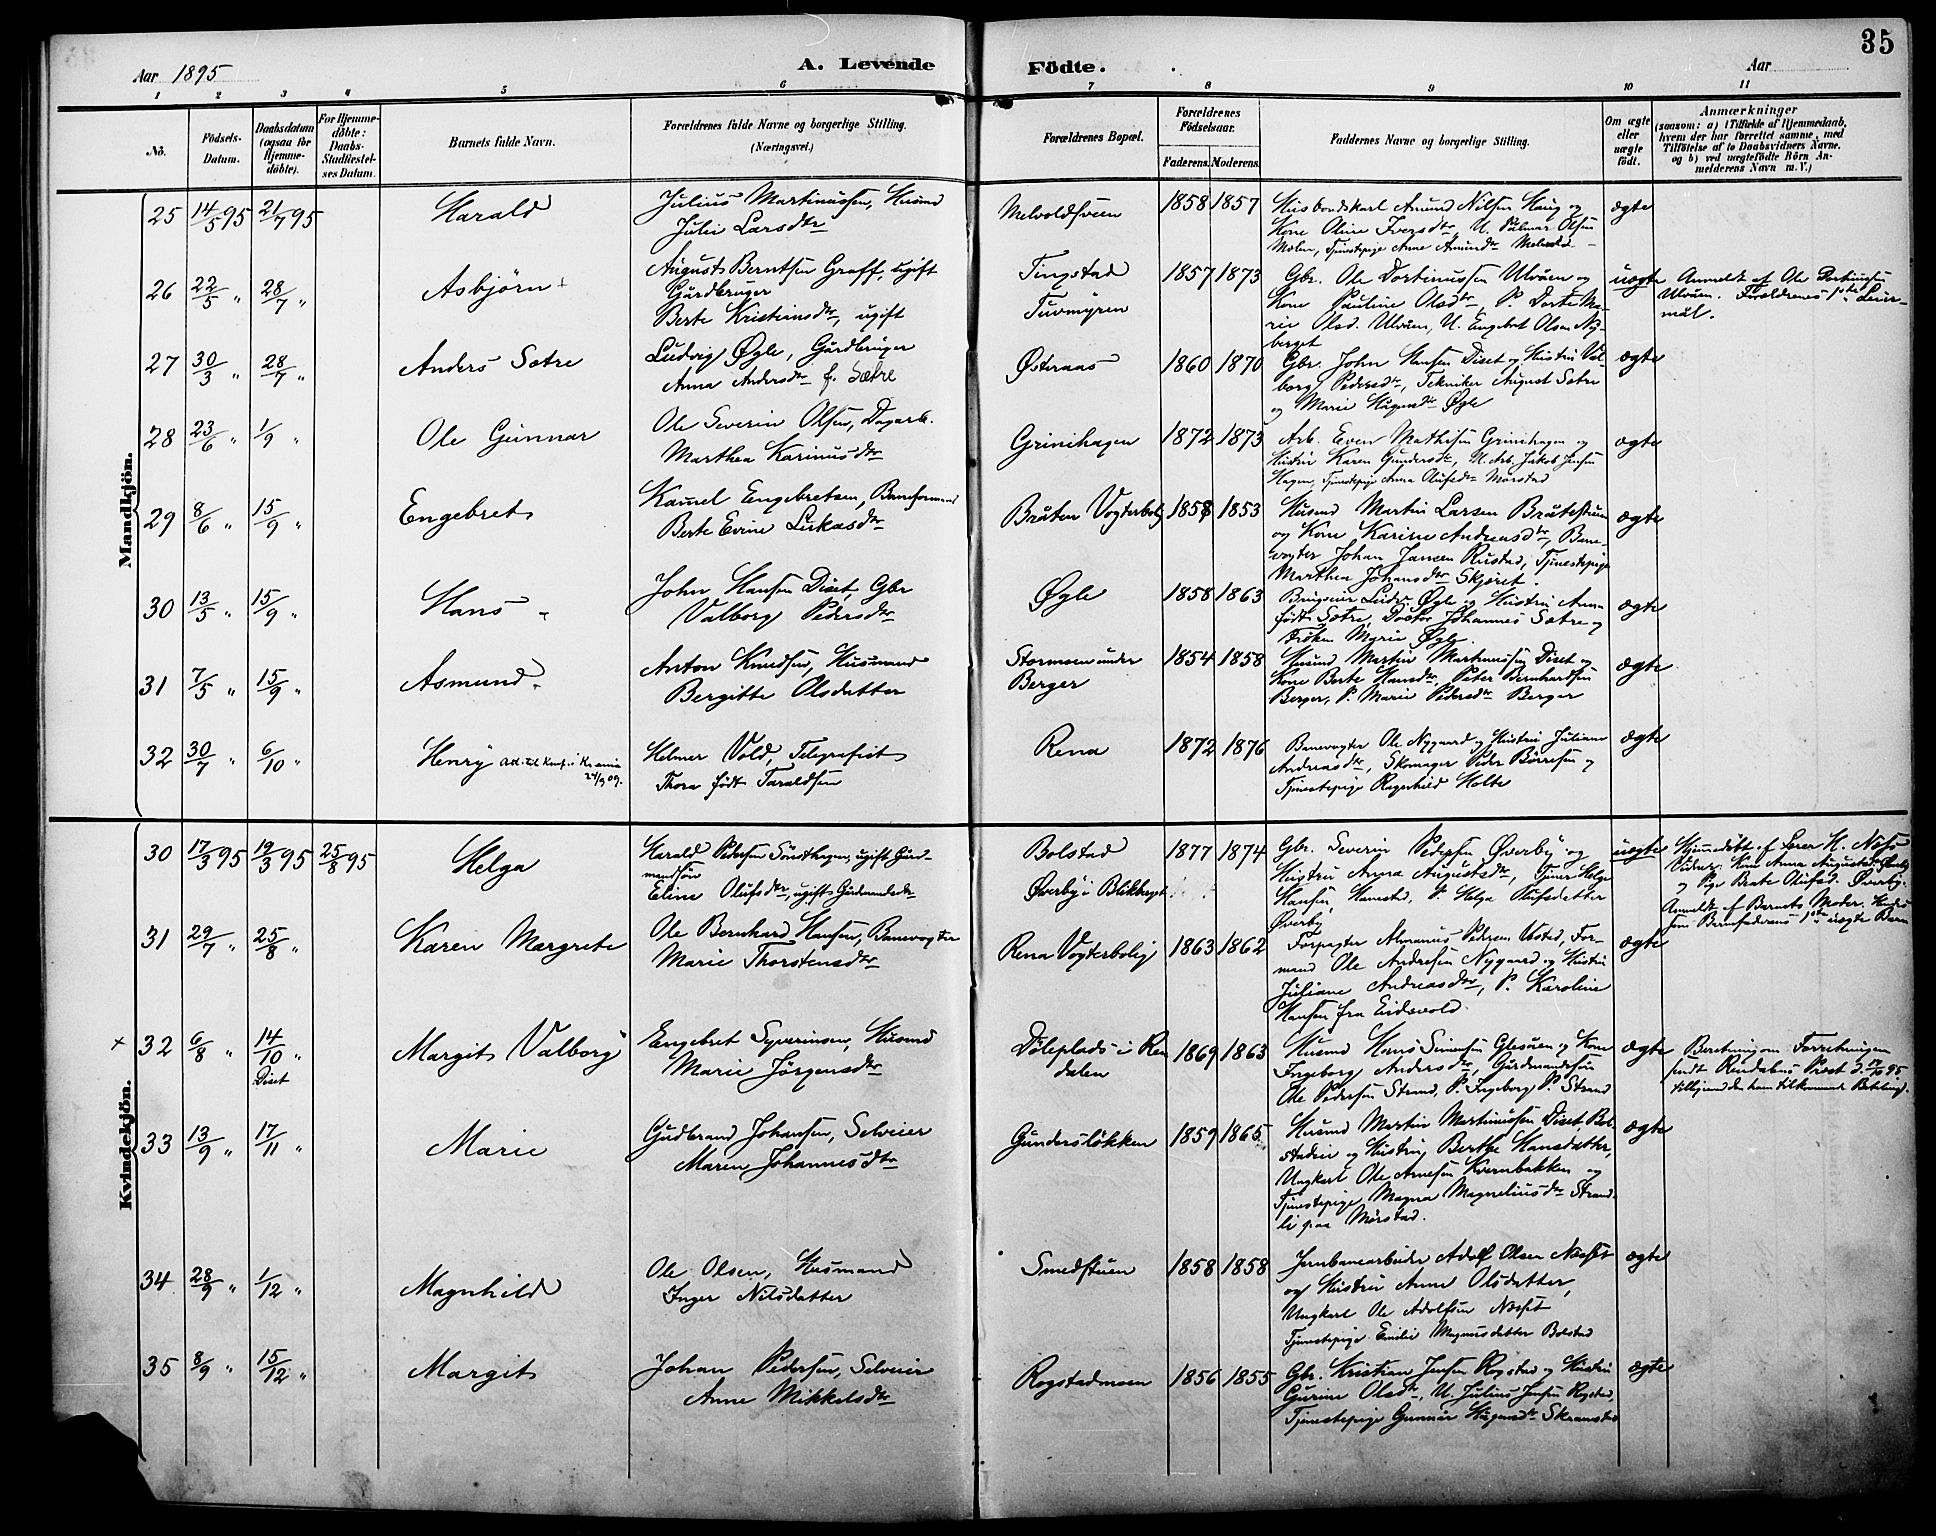 35
Aar 1895
A. Levende
Födte.
Aar
1 2 3 4 5 6 7 8 9 10 11
Nô.
Födsels-Datum.
Daabsdatum (ogsaa for Hjemme-döbte).
For Hjemme-döbte: Daabs-Stadfæstel-ses Datum.
Barnets fulde Navn.
Forældrenes fulde Navne og borgerlige Stilling. (Næringsvei.)
Forældrenes Bopæl.
Forældrenes Födselsaar.
Faderens. Moderens.
Faddernes Navne og borgerlige Stilling.
Om ægte eller uægte födt.
Anmærkninger
(saasom: a) i Tilfælde af Hjemmedaab,
hvem der har forrettet samme, med
Tilföielse af to Daabsvidners Navne.
og b) ved uægtefödte Börn An-
melderens Navn m. V.)
Mandkjön.
25 14/5 95 21/7 95 Harald
Julius Martinussen, Husmd
Julie Larsdtr
Melvoldsveen 1858 1857
Husbondskarl Amund Nilsen Haug og
Kone Oline Iversdtr, U. Palmar Olsen
Melen, Tjenestepige Anne Amundsdtr
ægte
26 22/5 " 28/7 " Asbjörn
August Berntsen Graff, ugift
Gårdbruger
Berte Kristiansdtr, ugift
Tingstad
Tuvmyren
1857 1873
Gbr. Ole Dortinussen Ulvåen og
Kone Pauline Olsdtr, P. Dorte Ma-
rie Olsd. Ulvåen, U. Engebret Olsen Ny-
berget
uægte
Anmeldt af Ole Dortinussen
Ulvåen. Forældrenes 1ste Leier-
mål.
27 30/3 " 28/7 " Anders Sætre
Ludvig Øgle, Gårdbruger
Anna Andersdtr f. Sætre
Østeraas 1860 1870
Gbr. John Hansen Diset og Hustru Val-
borg Pedersdtr, Tekniker August Sætre
og Marie Øgle
ægte
28 23/6 " 1/9 " Ole Gunnar
Ole Severin Olsen, Dagarb.
Marthea Karinusdtr
Grinihagen 1872 1873
Arb. Even Mathisen Grinihagen og
Hustru Karen Gundersdtr, U. Arb. Jakob Jensen
Hagen, Tjenestepige Anna Olufsdtr Mörstad
ægte
29 8/6 " 15/9 " Engebret
Kamel Engebretsen, Baneformand
Berte Evine Lukasdtr
Bråten Vogterbolig 1857 1853
Husmd Martin Larsen Bråtestuen
og Kone Karine Andreasdtr, Bane-
vogter Johan Jansen Rustad, Tjenestepige
Marthea Johansdtr Skjöret.
ægte
30 13/5 " 15/9 " Hans
John Hansen Diset, Gbr
Valborg Pedersdtr
Øgle 1858 1863
Brugseier Ludv. Øgle og Hustru Anna
födt Sætre, Doctor Johannes Sætre og
Fröken Marie Øgle
ægte
31 7/5 " 15/9 " Asmund
Anton Knudsen, Husmand
Bergitte Olsdatter
Stormoen under
Berger
1854 1858
Husmd Martin Martinussen Diset og
Kone Berte Hansdtr, Peter Bernhardsen
Berger, P. Marie Pedersdtr Berger
ægte
32 30/7 " 6/10 " Henry
Att. til Konf. i Kr.ania
24/9 09.
Helmer Vold, Telegrafist
Thora födt Taraldsen
Rena 1872 1876
Banevogter Ole Nygaard og Hustru Juliane
Andreasdtr, Skomager Peder Börresen og
Tjenestepige Ragnhild Holte
ægte
Kvindekjön.
30 17/3 95 19/3 95 25/8 95 Helga
Harald Pedersen Sönsthagen, ugift Gård-
mandssön
Eline Olufsdtr, ugift Gårdmandsdtr
Bolstad
Øverby i Blikberget
1877 1874
Gbr. Severin Pedersen Øverby og
Hustru Anna Augustadtr, Tjener Helge
Hansen Hanestad, P. Helga Olufsdatter
Øverby
uægte
Hjemmedöbt af Lærer H. Næss
Vidner: Kone Anna Augustadtr Øverby
og Pige Beate Olufsd. Øverby.
Anmeldt af Barnets Moder. Hendes
som Barnefaderens 1ste uægte Barn
31 29/7 " 25/8 " Karen Margrete
Ole Bernhard Hansen, Banevogter
Marie Thorstensdtr
Rena Vogterbolig 1863 1862
Forpagter Almanus Pedersen Ulstad, For-
mand Ole Andresen Nygaard og Hustru
Juliane Andreasdtr, P. Karoline
Hansen fra Eidsvold.
ægte
× 32 6/8 " 14/10 " Diset
Margit Valborg
Engebret Syverinsen, Husmd
Marie Jörgensdtr
Döleplads i Ren
dalen
1869 1863
Husmd Hans Simensen Glesåen og Kone
Ingeborg Andersdtr, Gårdmandssön
Ole Pedersen Strand, P. Ingeborg P. Strand
ægte
Beretning om Forretningen
sendt Rendalens Præst d. 17/10 95
tilligemed den ham tilkommende Betaling.
33 13/9 " 17/11 " Marie
Gudbrand Johansen, Selveier
Maren Johannesdtr
Gundersløkken 1859 1865
Husmd Martin Martinussen Diset Bol-
stadeie og Hustru Berthe Hansdatter,
Ungkarl Ole Arnesen Kvernbakken og
Tjenestepige Magna Magneliusdtr Strand-
li paa Mörstad.
ægte
34 28/9 " 1/12 " Magnhild
Ole Olsen, Husmand
Inger Nilsdatter
Smedstuen 1858 1858
Jernbanearbeider Adolf Olsen Næset
og Hustru Anne Olsdatter,
Ungkarl Ole Adolfsen Næset
Tjenestepige Emilie Magnusdatter Bolstad
ægte
35 8/9 " 15/12 " Margit
Johan Pedersen, Selveier
Anne Mikkelsdtr
Rogstadmoen 1856 1855
Gbr. Kristian Jensen Rogstad og Hustru
Gurine Olsdtr, U. Julius Jensen Rogstad,
Tjenestepige Gunnar Skramstad
ægte